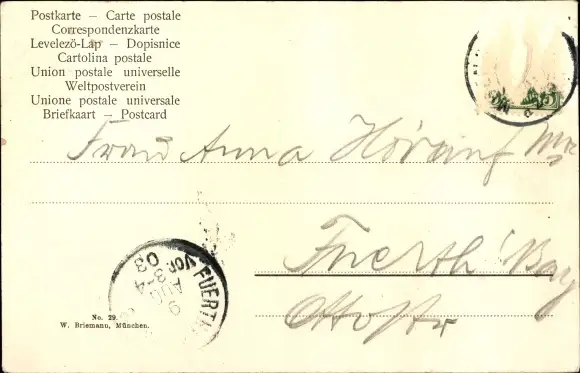 Postkarte – Carte postale
Correspondenzkarte
Levelező-Lap – Dopisnice
Cartolina postale
Union postale universelle
Weltpostverein
Unione postale universale
Briefkaart – Postcard
Frau Anna
Fuerth Bay
Ottostr
FUERTH
9 AUG
3-4
VOR.
03
No. 29.
W. Briemann, München.